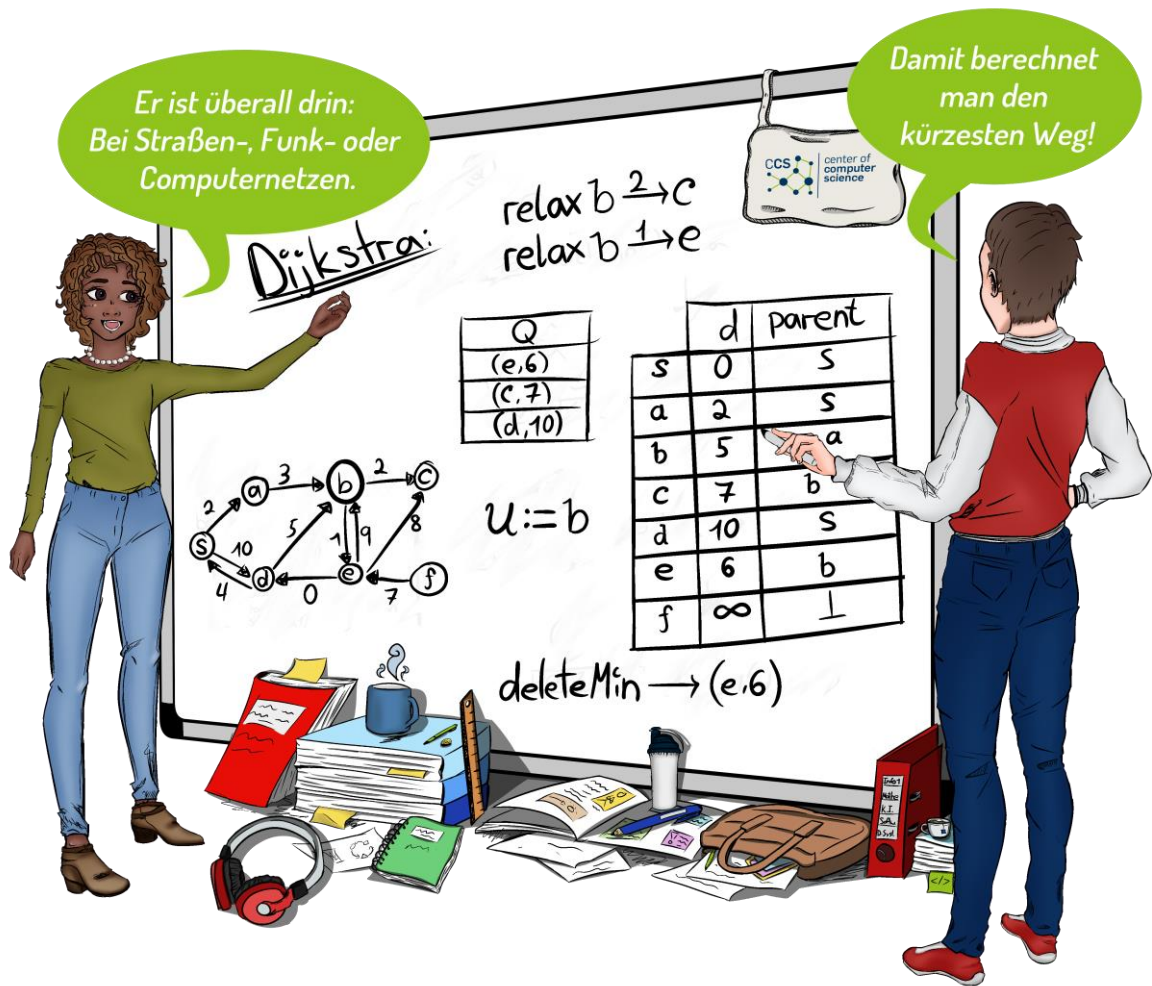 Er ist überall drin:
Bei Straßen-, Funk- oder
Computernetzen.
Damit berechnet
man den
kürzesten Weg!
CCS
center of
computer
science
Dijkstra:
relax b 2→ c
relax b 1→ e
Q
(e,6)
(c,7)
(d,10)
d parent
s 0 s
a 2 s
b 5 a
c 7 b
d 10 s
e 6 b
f ∞ ⊥
a 3 b 2 c
2 5 1 9 8
s 10 d e f
4 0 7
u:=b
deleteMin → (e,6)
Info1
Mathe
K.I.
</>